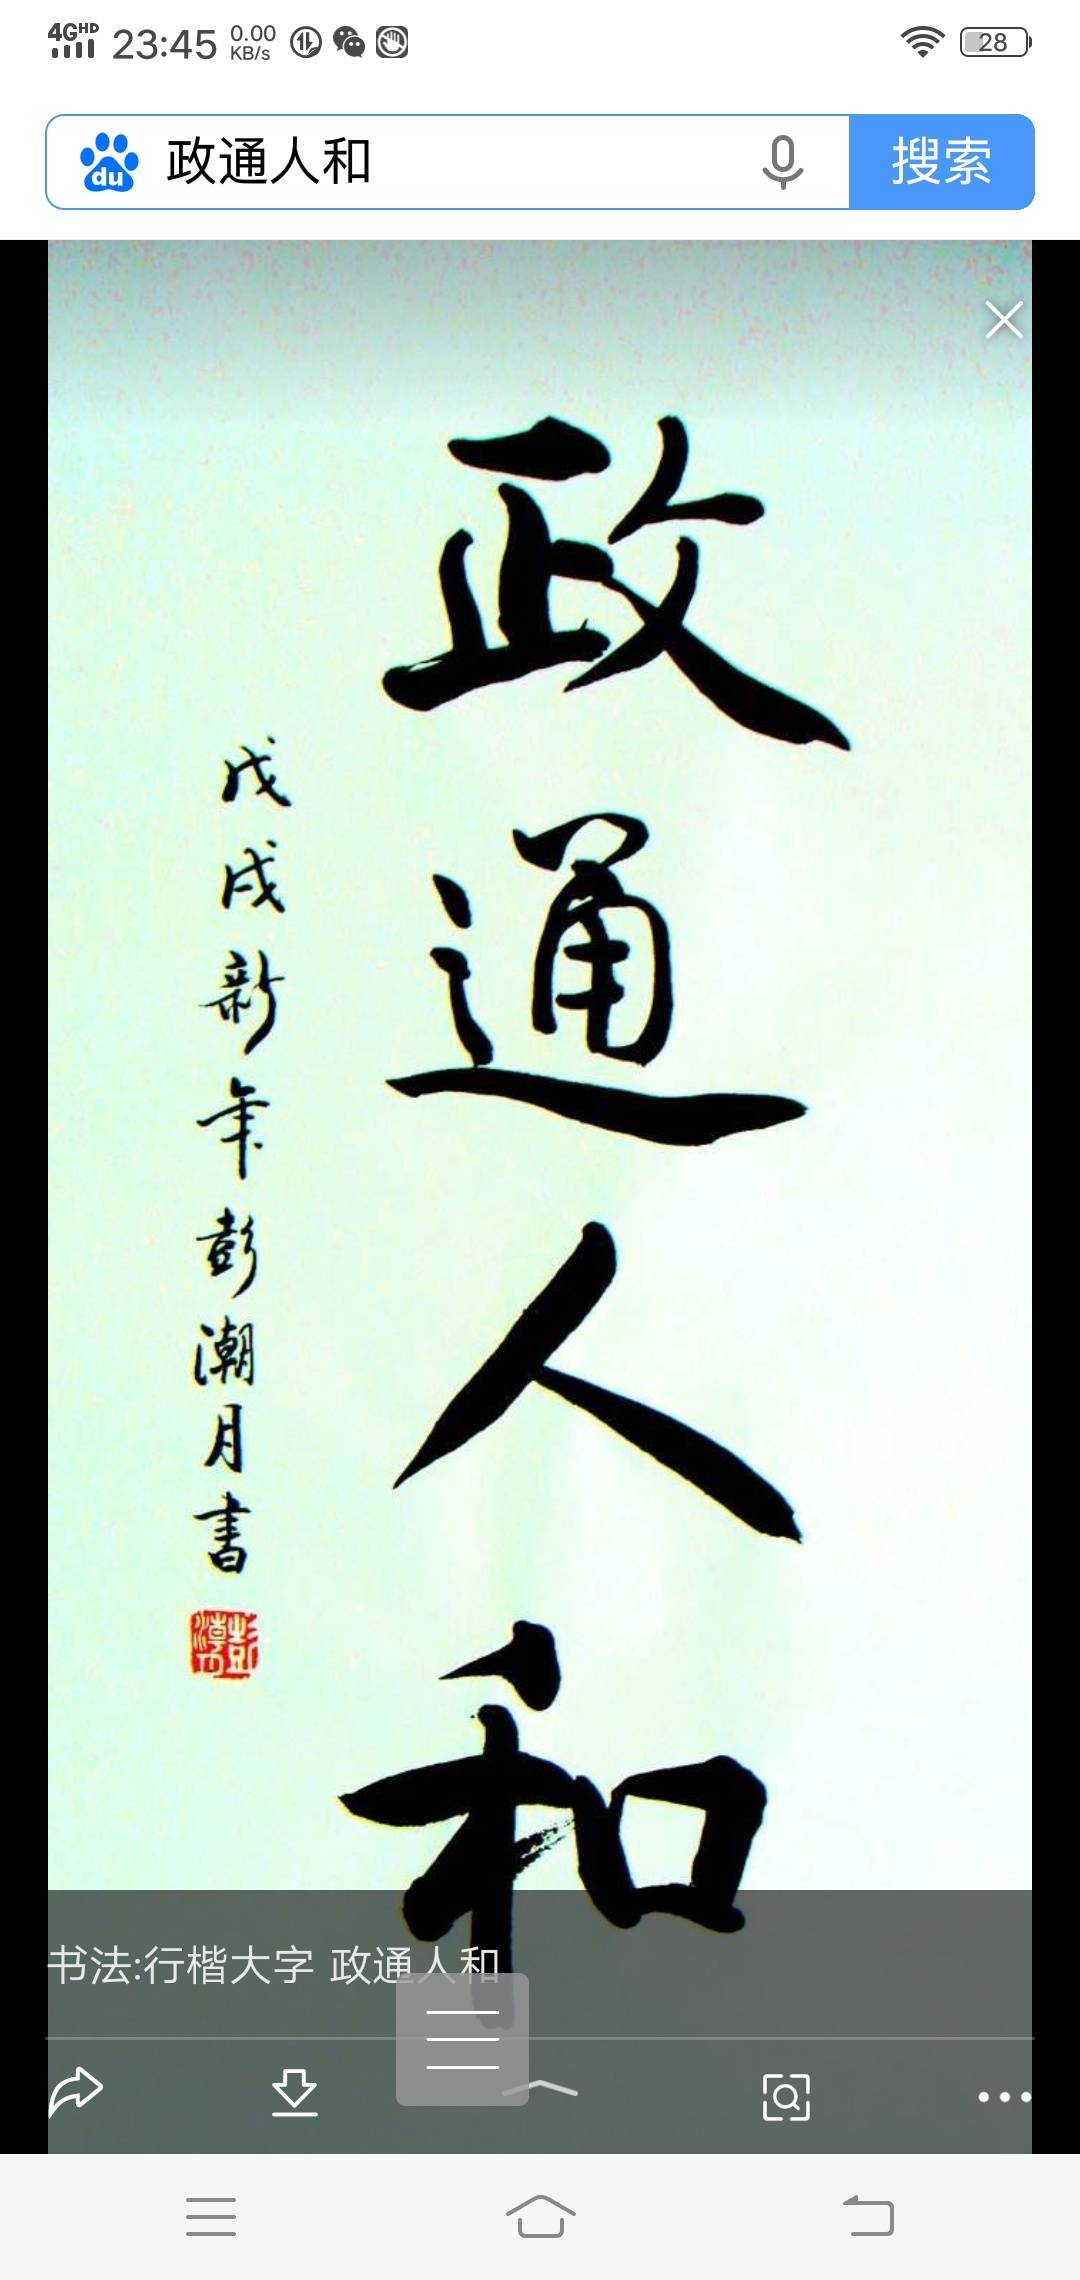 4G HD 23:45 0.00 KB/s 28
du 政通人和 搜索
政通人和
戊戌新年彭潮月書
书法:行楷大字 政通人和